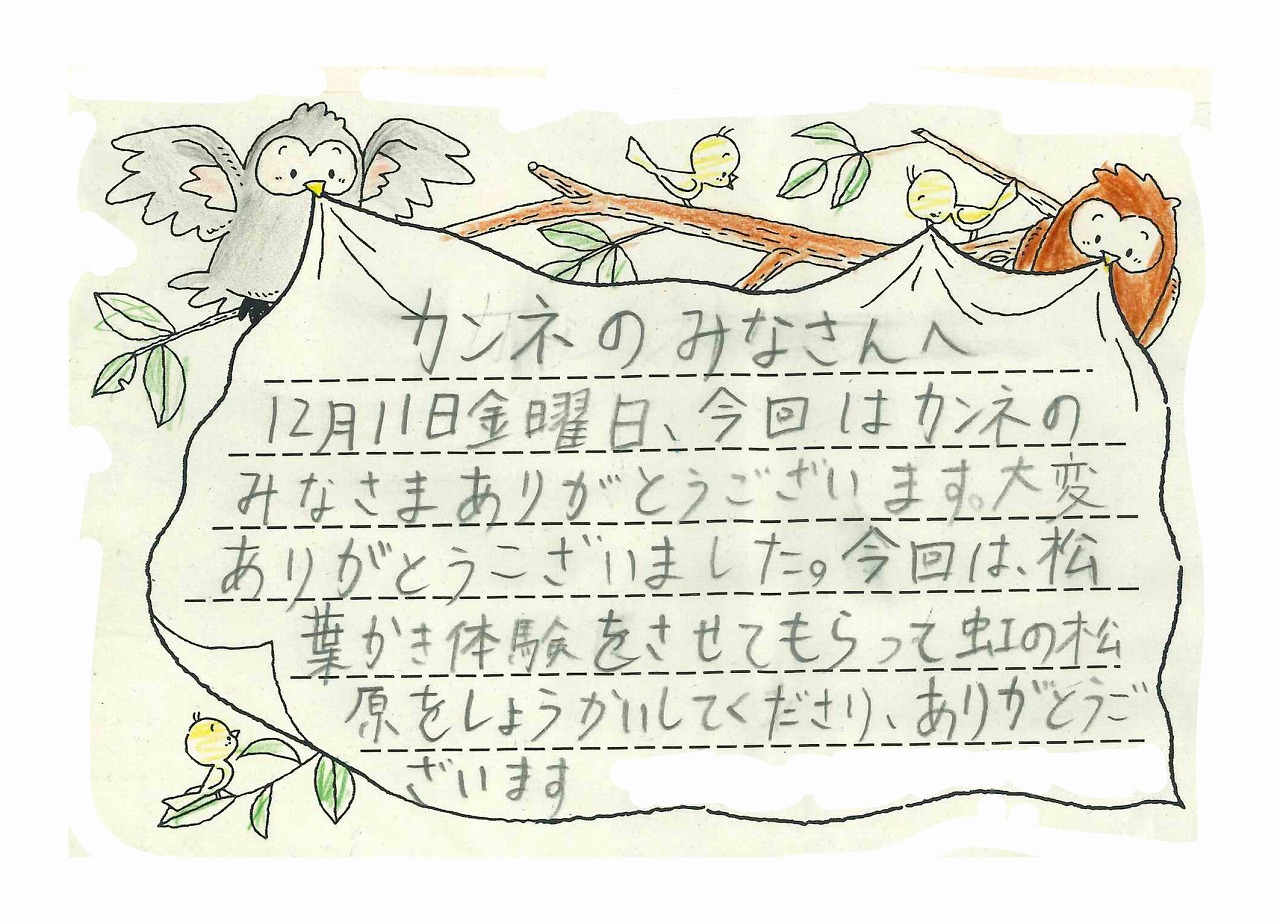 カンネのみなさんへ
12月11日金曜日、今回はカンネの
みなさまありがとうございます。大変
ありがとうこざいました。今回は、松
葉かき体験をさせてもらって虹の松
原をしょうかいしてくださり、ありがとうご
ざいます